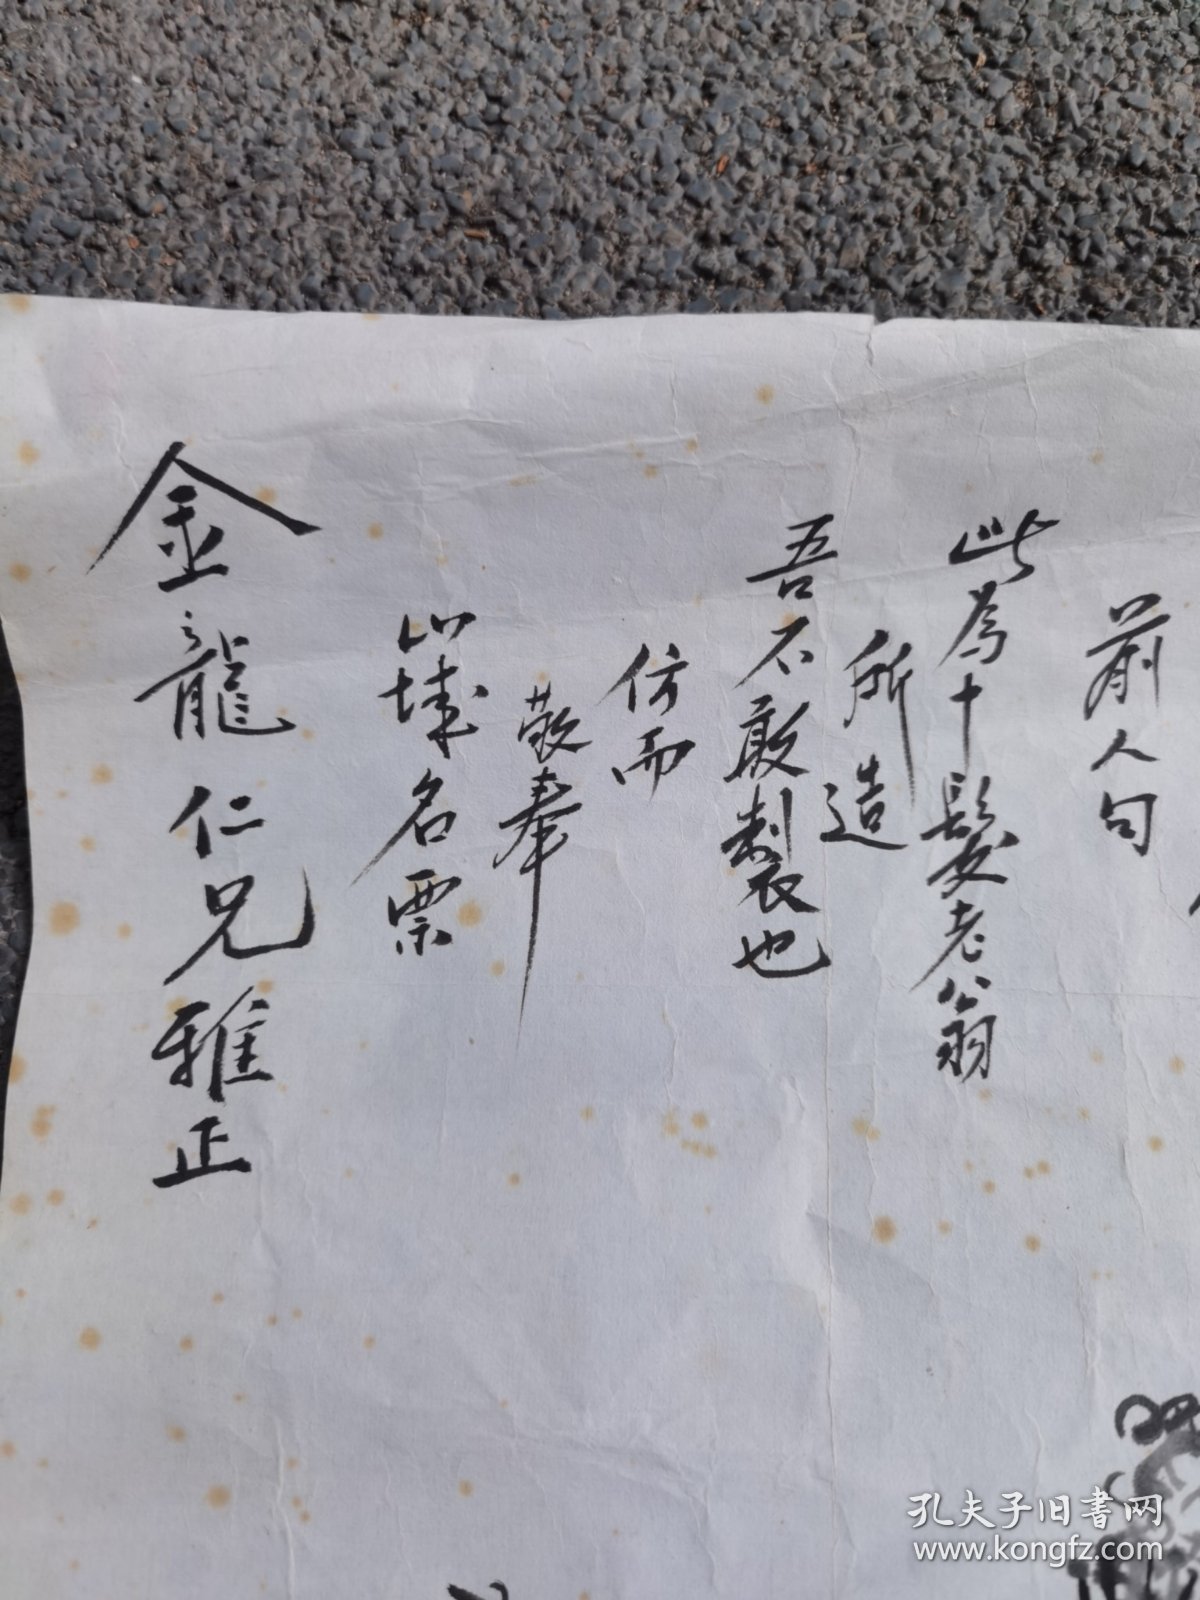 前人句
此為十髮老翁
所造
吾不敢製也
仿而
敬奉
山城名票
金龍仁兄雅正
孔夫子旧书网
www.kongfz.com